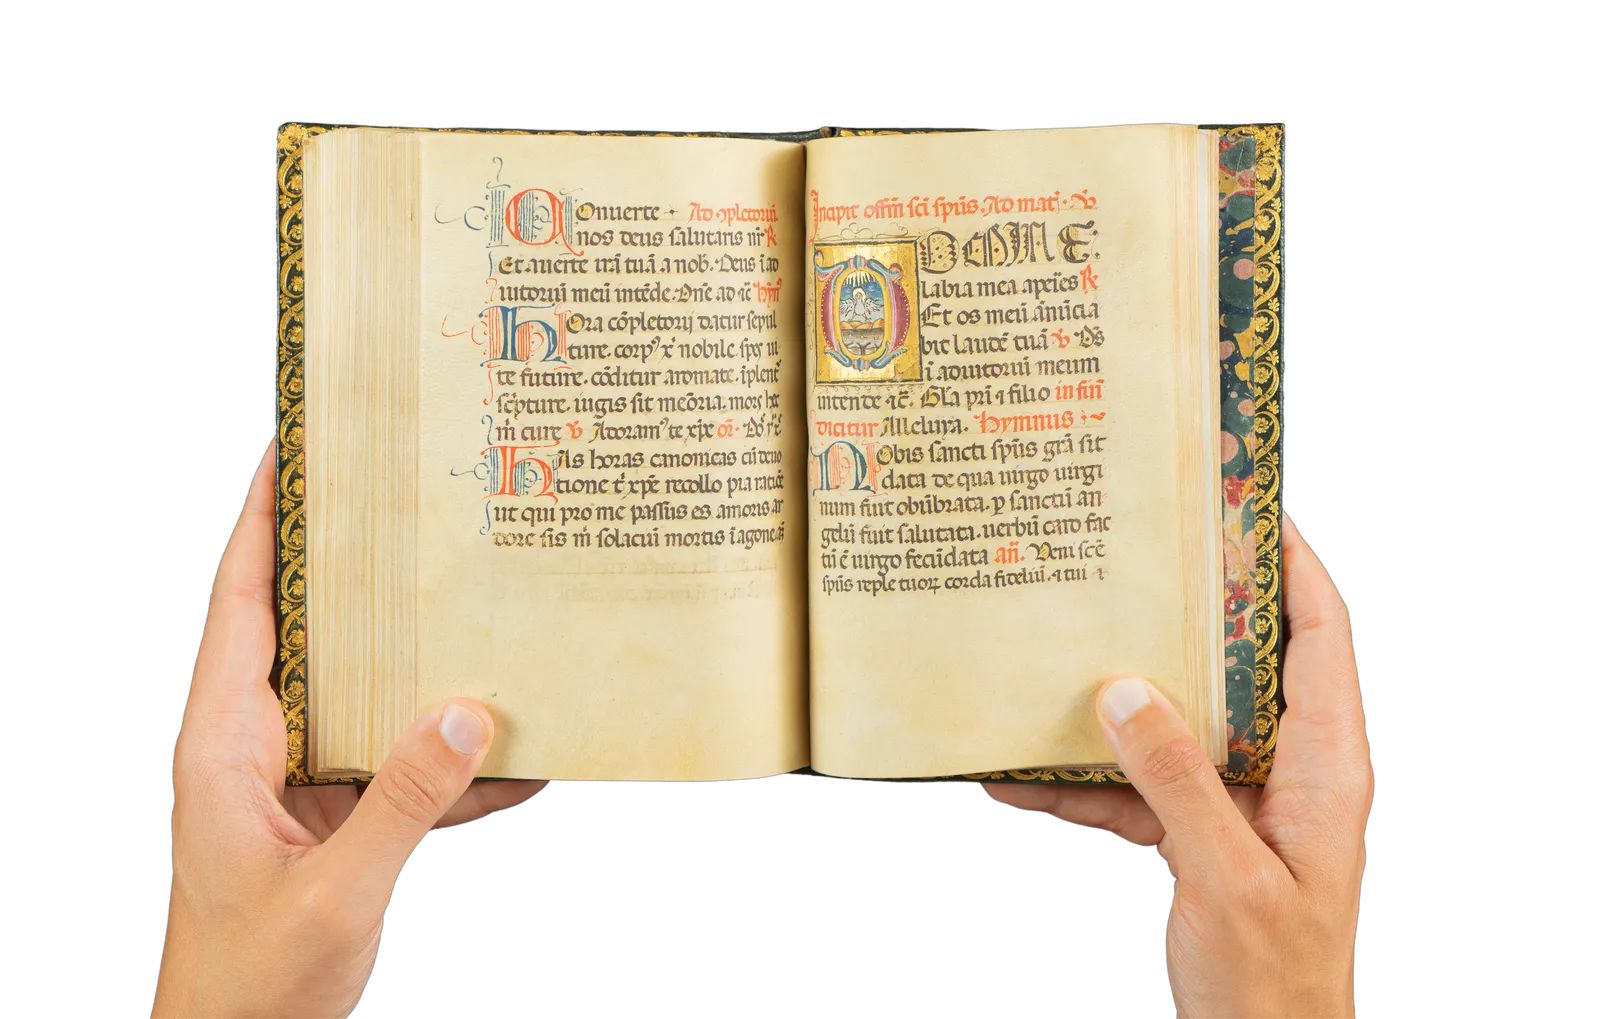 COnuerte · Ad cpletoriũ.
nos deus salutaris nr̃ R
Et auerte irã tuã a nob. Deus ĩ ad
iutoriũ meũ intẽde. Dñe ad ⁊c̃ hỹmꝰ
hOra cõpletorij datur sepul
ture. corpꝰ xp̃ nobile. spes ui
te future. cõditur aromate. ĩplent᷑
scpture. iugis sit meõria. mors hec
m̃ cure ℣ Adoramꝰ te xp̃e oř.
hAs horas canonicas cũ deuo
tione t᷑ xp̃e recollo pia ratiõe
ut qui pro me passus es amoris ar
dore sis m̃ solaciũ mortis ĩ agone.
Incipit offm̃ sc̃i spũs. Ad mat᷑. ℣
DOMINE:
labia mea apẽies R
Et os meũ ãnũcia
bit laudẽ tuã ℣ Ds̃
ĩ adiutoriũ meum
intende ⁊c̃. Gl̃a pr̃i ⁊ filio in fiñ
dicitur Alleluya. Hymnus
NObis sancti spũs grã sit
data de qua uirgo uirgi
num fuit obũbrata. ꝑ sanctũ an
gelũ fuit salutata. uerbũ caro fac
tũ ẽ uirgo fecũdata añ. Veni sc̃e
spũs reple tuoꝝ corda fideliũ. ⁊ tui ĩ